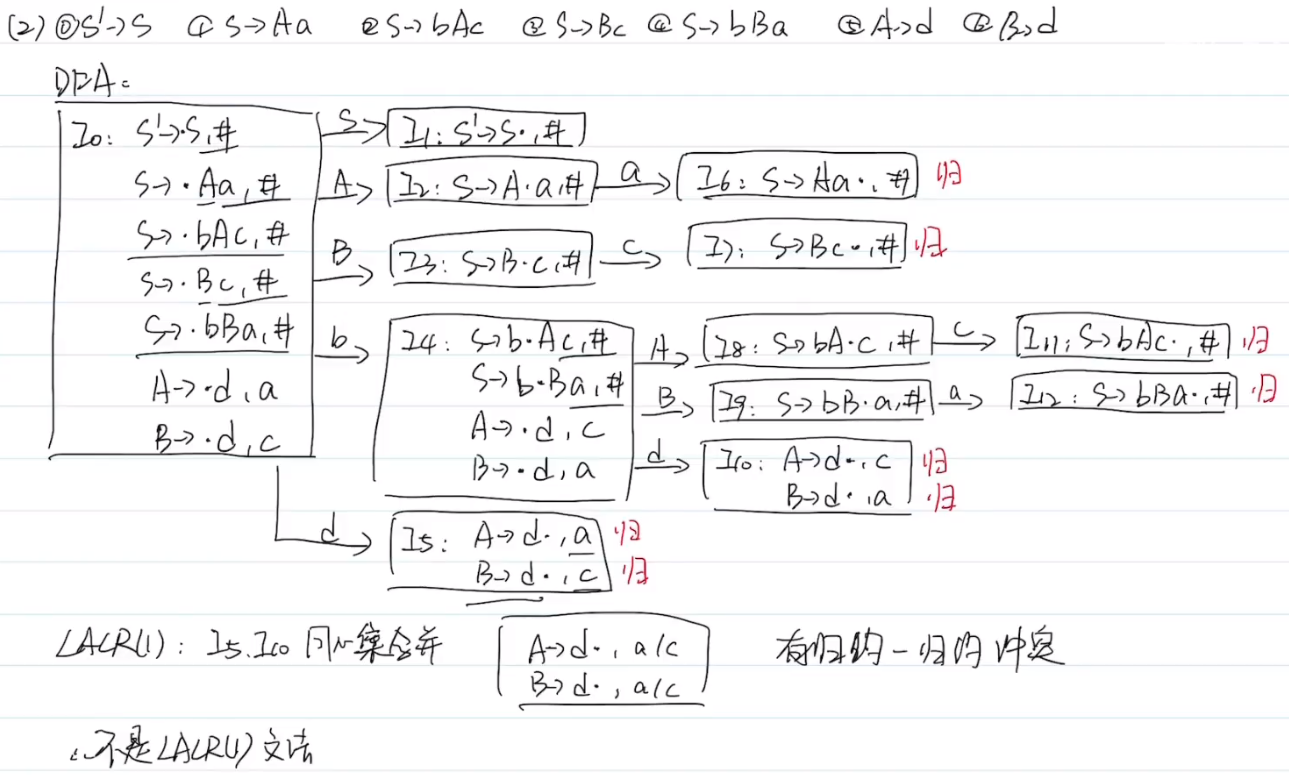 (2) ⓪S'→S ① S→Aa ② S→bAc ③ S→Bc ④ S→bBa ⑤ A→d ⑥ B→d
DFA:
I0: S'→·S,#
S→·Aa,#
S→·bAc,#
S→·Bc,#
S→·bBa,#
A→·d,a
B→·d,c
S
I1: S'→S·,#
A
I2: S→A·a,#
a
I6: S→Aa·,#
归
B
I3: S→B·c,#
c
I7: S→Bc·,#
归
b
I4: S→b·Ac,#
S→b·Ba,#
A→·d,c
B→·d,a
A
I8: S→bA·c,#
c
I11: S→bAc·,#
归
B
I9: S→bB·a,#
a
I12: S→bBa·,#
归
d
I10: A→d·,c
归
B→d·,a
归
d
I5: A→d·,a
归
B→d·,c
归
LALR(1): I5.I10 同心集合并
A→d·,a/c
B→d·,a/c
有归约-归约冲突
∴不是LALR(1)文法